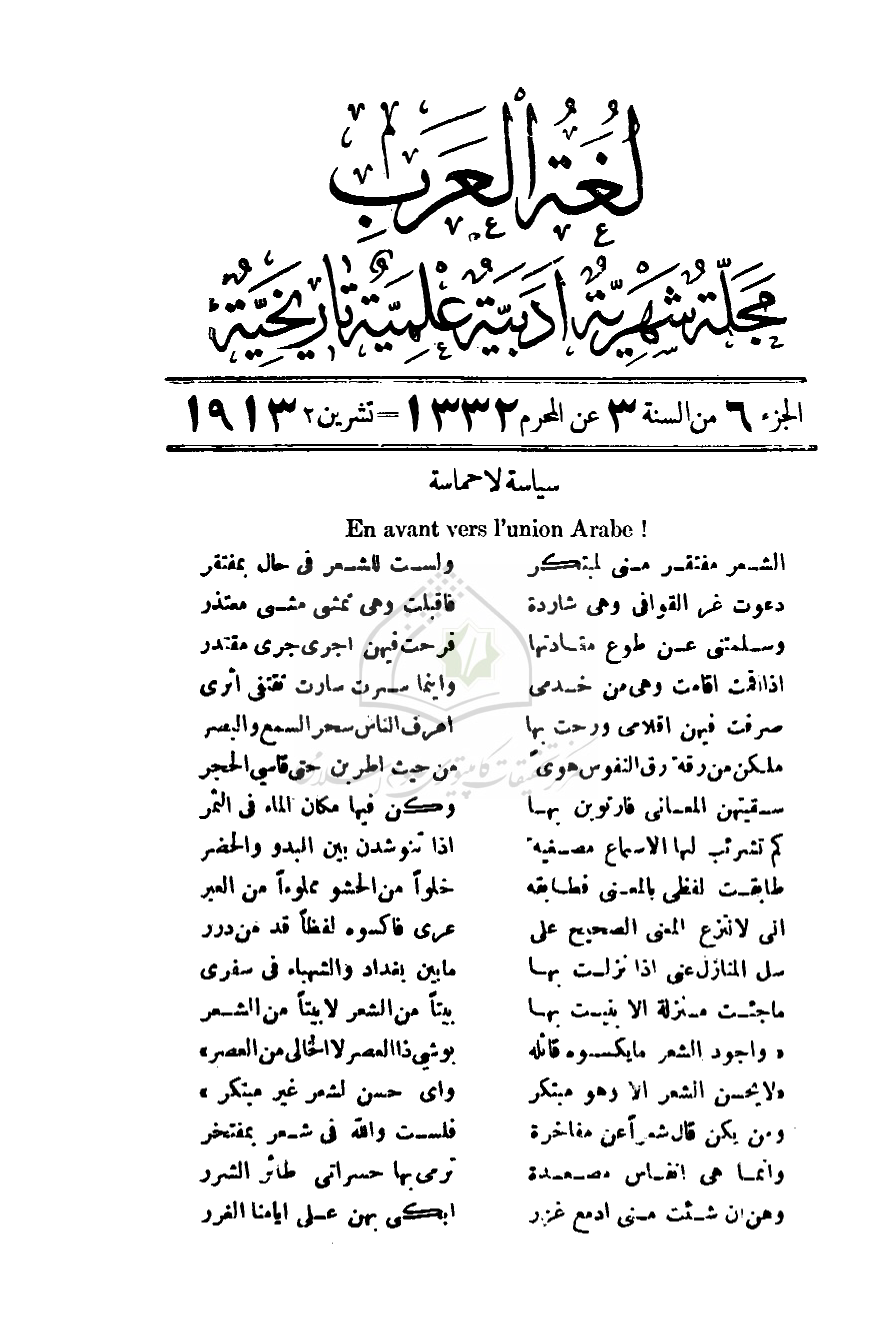 لُغَةُ الْعَرَبِ
مَجَلَّةٌ شَهْرِيَّةٌ أَدَبِيَّةٌ عِلْمِيَّةٌ تَارِيخِيَّةٌ
الجزء ٦ من السنة ٣ عن المحرم ١٣٣٢ = تشرين ٢ ١٩١٣
سياسة لا حماسة
En avant vers l'union Arabe !
الشعر مفتقر منى لمبتكر ولست للشعر فى حال بمفتقر
دعوت غر القوافى وهى شاردة فاقبلت وهى تمشى مشى معتذر
وسلمتنى عن طوع مقادتها فرحت فيهن اجرى جرى مقتدر
اذا اقمت اقامت وهى من خدمى واينما سرت سارت تقتفى أثرى
صرفت فيهن اقلامى ورحت بها اهرف الناس سحر السمع والبصر
ملكن من رقة رق النفوس هوىً من حيث اطربن حتى قاسي الحجر
سقيتهن المعانى فارتوين بها وكن فيها مكان الماء فى الثمر
كم تشرئب لها الاسماع مصغية اذا تنوشدن بين البدو والحضر
طابقت لفظى بالمعنى فطابقه خلواً من الحشو مملوءاً من العبر
انى لانتزع المعنى الصحيح على عرى فاكسوه لفظاً قد من درر
سل المنازل عنى اذا نزلت بها مابين بغداد والشهباء فى سفرى
ماجئت منزلة الا بنيت بها بيتاً من الشعر لا بيتاً من الشعر
« واجود الشعر مايكسوه قائله بوشي ذا العصر لا الخالى من العصر»
«لايحسن الشعر الا وهو مبتكر واى حسن لشعر غير مبتكر »
ومن يكن قال شعراً عن مفاخرة فلست والله فى شعر بمفتخر
وانما هى انفاس مصعدة ترمى بها حسراتى طائر الشرر
وهن ان شئت منى ادمع غزر ابكى بهن على ايامنا الغرر